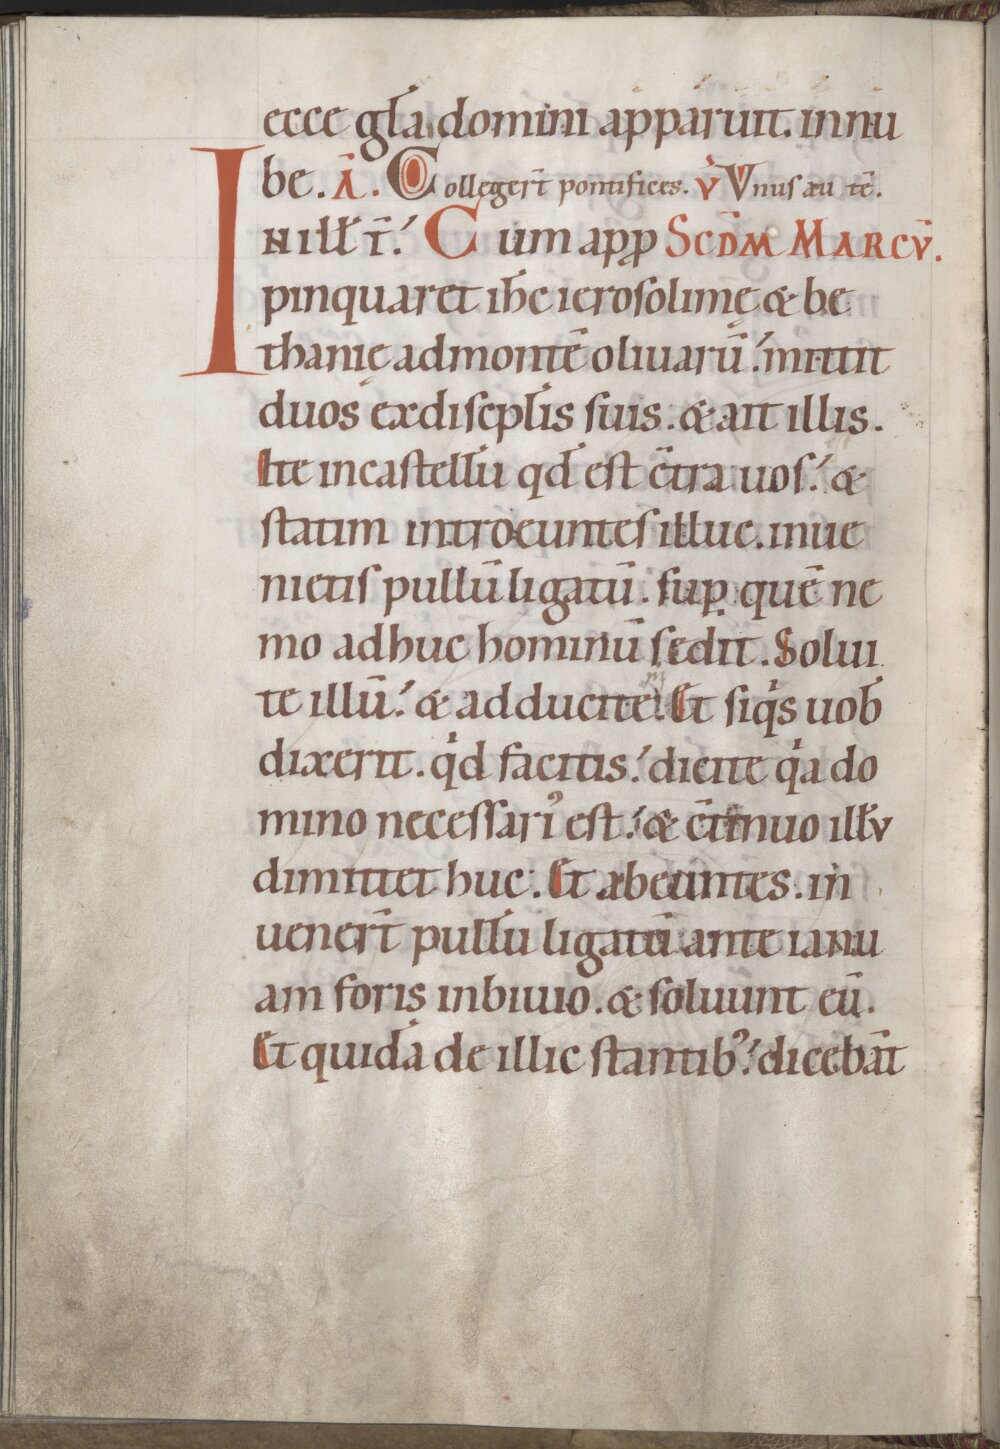 ecce gl̄a domini apparuit. in nu
be. Ā. Colleger̄t pontifices. v̇ Vnus au tē.
IN ill̄ t̄. Cum aprop SCDM̄ MARCV̄.
pinquaret ih̄c ierosolimę & be
thanię ad montē oliuarū. mittit
duos ex discipl̄is suis. & ait illis.
Ite in castell̄u qd̄ est c̄tra uos. &
statim introeuntes illuc. inue
nietis pullū ligatū. sup̱ quē ne
mo adhuc hominū sedit. Solui
te illū. & adducite. Et siq̇s uob̄
dixerit. q̇d facitis. dicite q̇a do
mino necessariꝰ est. & c̄tinuo ill̄v
dimittet huc. Et abeuntes. in
uener̄t pull̄u ligatū ante ianu
am foris in biuio. & soluunt eū.
Et quidā de illic stantibꝰ. dicebāt